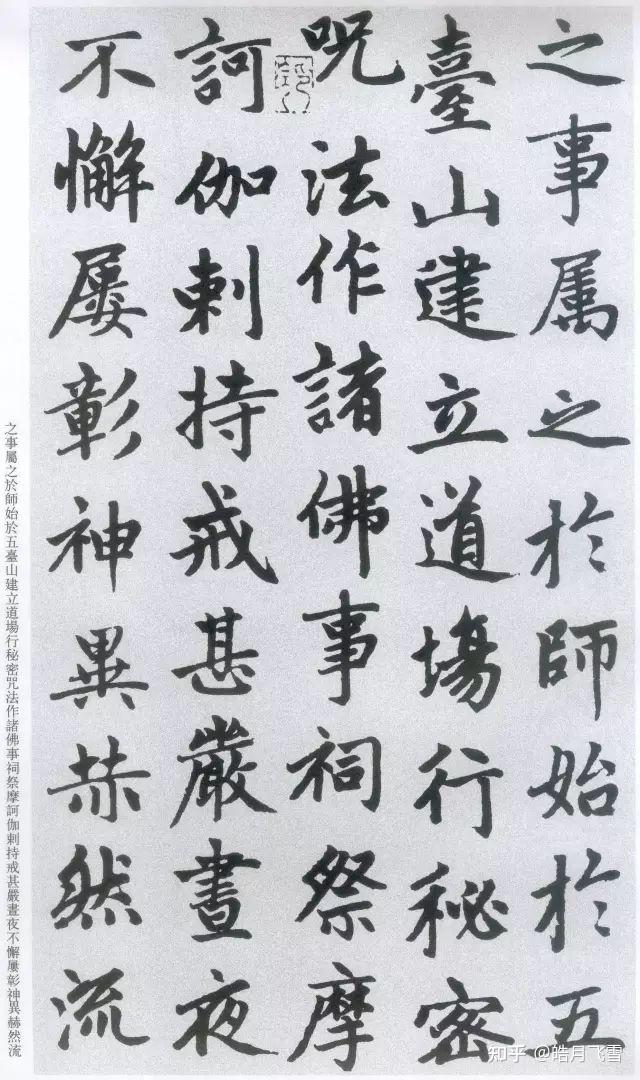 之事属之於師始於五
臺山建立道場行秘密
咒法作諸佛事祠祭摩
訶伽剌持戒甚嚴晝夜
不懈屡彰神異赫然流
之事屬之於師始於五臺山建立道場行秘密咒法作諸佛事祠祭摩訶伽剌持戒甚嚴晝夜不懈屢彰神異赫然流
知乎 @皓月飞雪